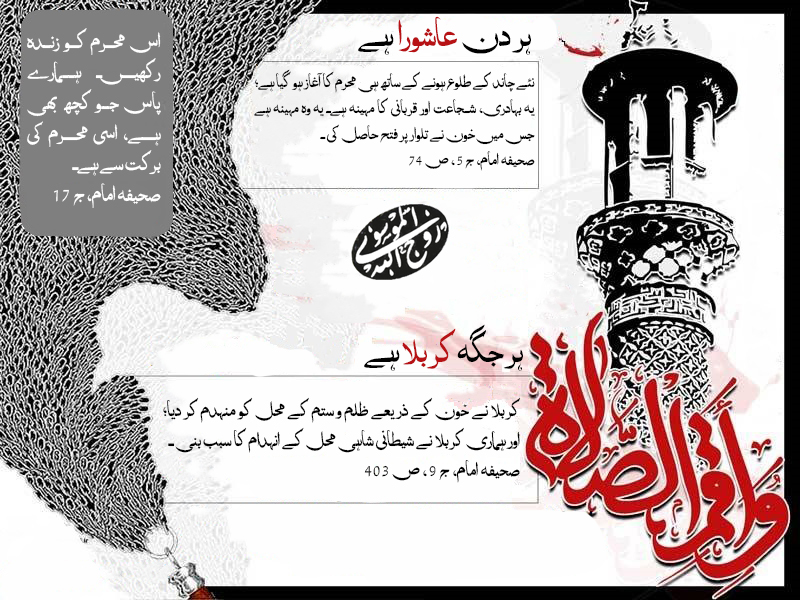 ہر دن عاشورا ہے
نئے چاند کے طلوع ہونے کے ساتھ ہی محرم کا آغاز ہو گیا ہے؛
یہ بہادری، شجاعت اور قربانی کا مہینہ ہے۔ یہ وہ مہینہ ہے
جس میں خون نے تلوار پر فتح حاصل کی۔
صحیفہ امام، ج 5، ص 74
اس محرم کو زندہ
رکھیں۔ ہمارے
پاس جو کچھ بھی
ہے، اسی محرم کی
برکت سے ہے۔
صحیفہ امام، ج 17
روح الله الموسوي
ہر جگہ کربلا ہے
کربلا نے خون کے ذریعے ظلم و ستم کے محل کو منہدم کر دیا؛
اور ہماری کربلا نے شیطانی شاہی محل کے انہدام کا سبب بنی۔
صحیفہ امام، ج 9، ص 403
وَأَقِمِ الصَّلَاةَ